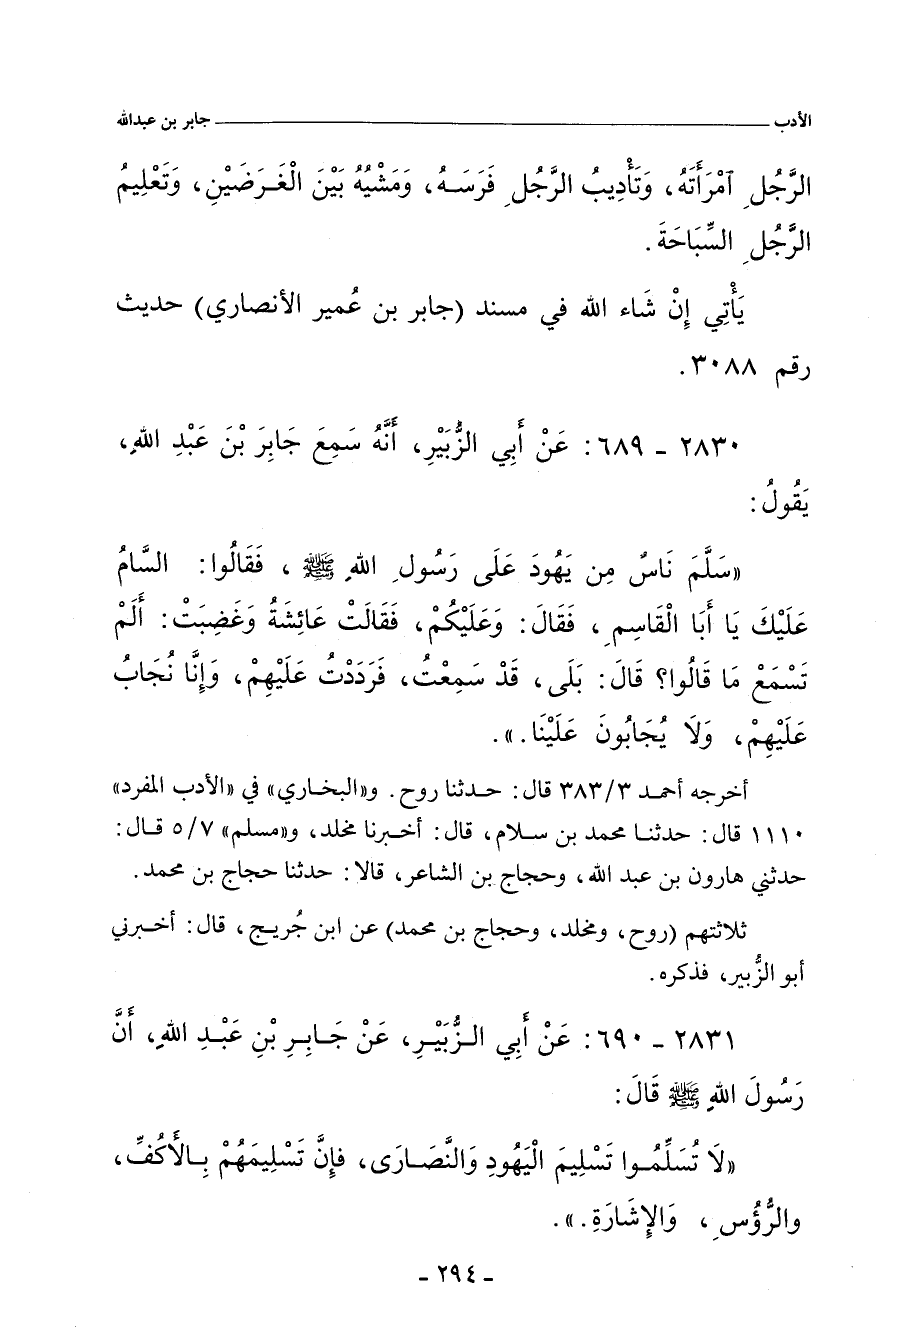 الأدب ـــــــــ جابر بن عبدالله
الرَّجُلِ آمْرَأَتَهُ، وَتَأْدِيبُ الرَّجُلِ فَرَسَـهُ، وَمَشْيُهُ بَيْنَ الْغَـرَضَيْنِ، وَتَعْلِيمُ
الرَّجُلِ السِّبَاحَةَ.
يَأْتِي إِنْ شَاء الله في مسند (جابر بن عُمير الأنصاري) حديث
رقم ٣٠٨٨.
٢٨٣٠ - ٦٨٩: عَنْ أَبِي الزُّبَيْرِ، أَنَّهُ سَمِعَ جَابِرَ بْنَ عَبْدِ اللهِ،
يَقُولُ:
«سَلَّمَ نَاسٌ مِن يَهُودَ عَلَى رَسُولِ اللهِ ﷺ، فَقَالُوا: السَّامُ
عَلَيْكَ يَا أَبَا الْقَاسِمِ، فَقَالَ: وَعَلَيْكُمْ، فَقَالَتْ عَائِشَةُ وَغَضِبَتْ: أَلَمْ
تَسْمَعْ مَا قَالُوا؟ قَالَ: بَلَى، قَدْ سَمِعْتُ، فَرَدَدْتُ عَلَيْهِمْ، وَإِنَّا نُجَابُ
عَلَيْهِمْ، وَلَا يُجَابُونَ عَلَيْنَا.».
أخرجه أحمـد ٣٨٣/٣ قال: حـدثنا روح. و«البخـاري» في «الأدب المفرد»
١١١٠ قال: حدثنـا محمد بن سـلام، قال: أخبرنا مخلد، و«مسلم» ٥/٧ قـال:
حدثني هارون بن عبد الله، وحجاج بن الشاعر، قالا: حدثنا حجاج بن محمد.
ثلاثتهم (روح، ومخلد، وحجاج بن محمد) عن ابن جُريـج، قال: أخـبرني
أبو الزُّبير، فذكره.
٢٨٣١ - ٦٩٠: عَنْ أَبِي الـزُّبَيْـرِ، عَنْ جَـابِـرِ بْنِ عَبْـدِ اللهِ، أَنَّ
رَسُولَ اللهِ ﷺ قَالَ:
«لَا تُسَلِّمُـوا تَسْلِيمَ الْيَهُودِ وَالنَّصَارَى، فَإِنَّ تَسْلِيمَهُمْ بِـالأَكُفِّ،
والرُّؤُسِ، وَالإِشَارَةِ.».
- ٢٩٤ -